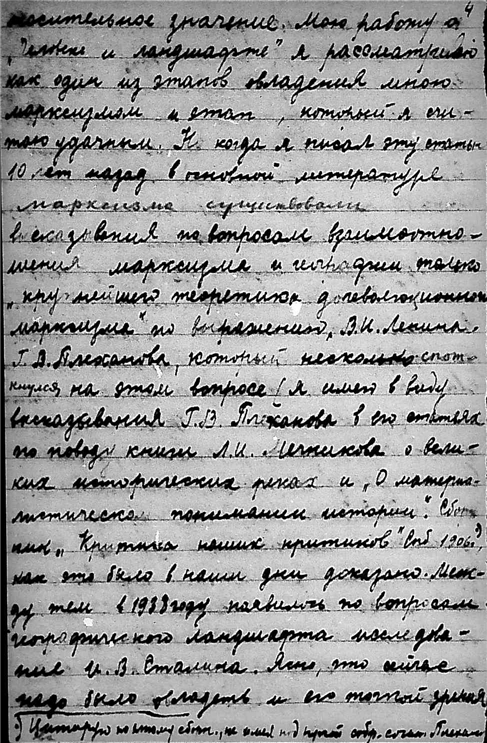 4
носительное значение. Мою работу о
„Человеке и ландшафте" я рассматриваю
как один из этапов овладения мною
марксизмом и этап, который я счи-
таю удачным. Но когда я писал эту статью
10 лет назад в основной литературе
марксизма существовали
высказывания по вопросам взаимоотно-
шения марксизма и географии только
„крупнейшего теоретика дореволюционного
марксизма" по выражению В.И. Ленина
Г.В. Плеханова, который несколько спот-
кнулся на этом вопросе (я имею в виду
высказывания Г.В Плеханова в его статьях
по поводу книги Л.И. Мечникова о вели-
ких исторических реках и „О материа-
листическом понимании истории". Сбор-
ник „Критика наших критиков" Спб 1906г),
как это было в наши дни доказано. Меж-
ду тем в 1938 году появилось по вопросам
географического ландшафта исследова-
ние И.В. Сталина. Ясно, что сейчас
надо было овладеть и его точкой зрения
) Цитирую по этому сборн., не имея под рукой собр. сочин. Плехан